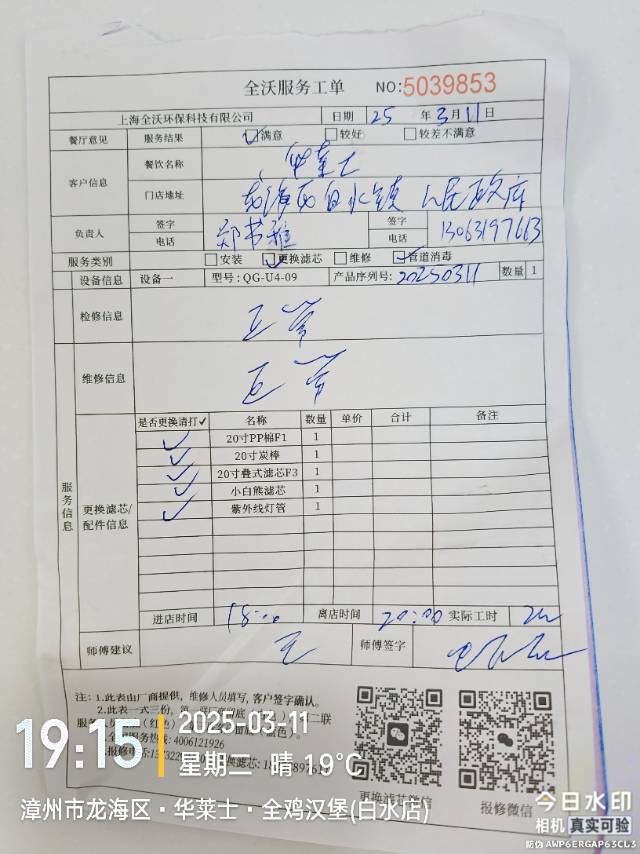 全沃服务工单 NO:5039853
上海全沃环保科技有限公司 日期 25 年 3 月 11 日
餐厅意见 服务结果 满意 较好 较差不满意
客户信息 餐饮名称 华莱士
门店地址 龙海区白水镇人民政府
负责人 签字 郑书雅 签字
电话 电话 13063197663
服务类别 安装 更换滤芯 维修 管道消毒
设备信息 设备一 型号:QG-U4-09 产品序列号: 20250311 数量 1
检修信息 正常
维修信息 正常
服务信息
更换滤芯/配件信息
是否更换请打✓ 名称 数量 单价 合计 备注
✓ 20寸PP棉F1 1
✓ 20寸炭棒 1
✓ 20寸叠式滤芯F3 1
✓ 小白熊滤芯 1
✓ 紫外线灯管 1
进店时间 18:00 离店时间 20:00 实际工时 2h
师傅建议 无 师傅签字
注: 1.此表由厂商提供, 维修人员填写, 客户签字确认。
2.此表一式三份,
服务热线: 4006121926
报修电话:
更换滤芯微信 报修微信
19:15 2025-03-11
星期二 晴 19℃
漳州市龙海区·华莱士·全鸡汉堡(白水店)
今日水印
相机 真实可验
防伪 AWP6ERGAP63CL3